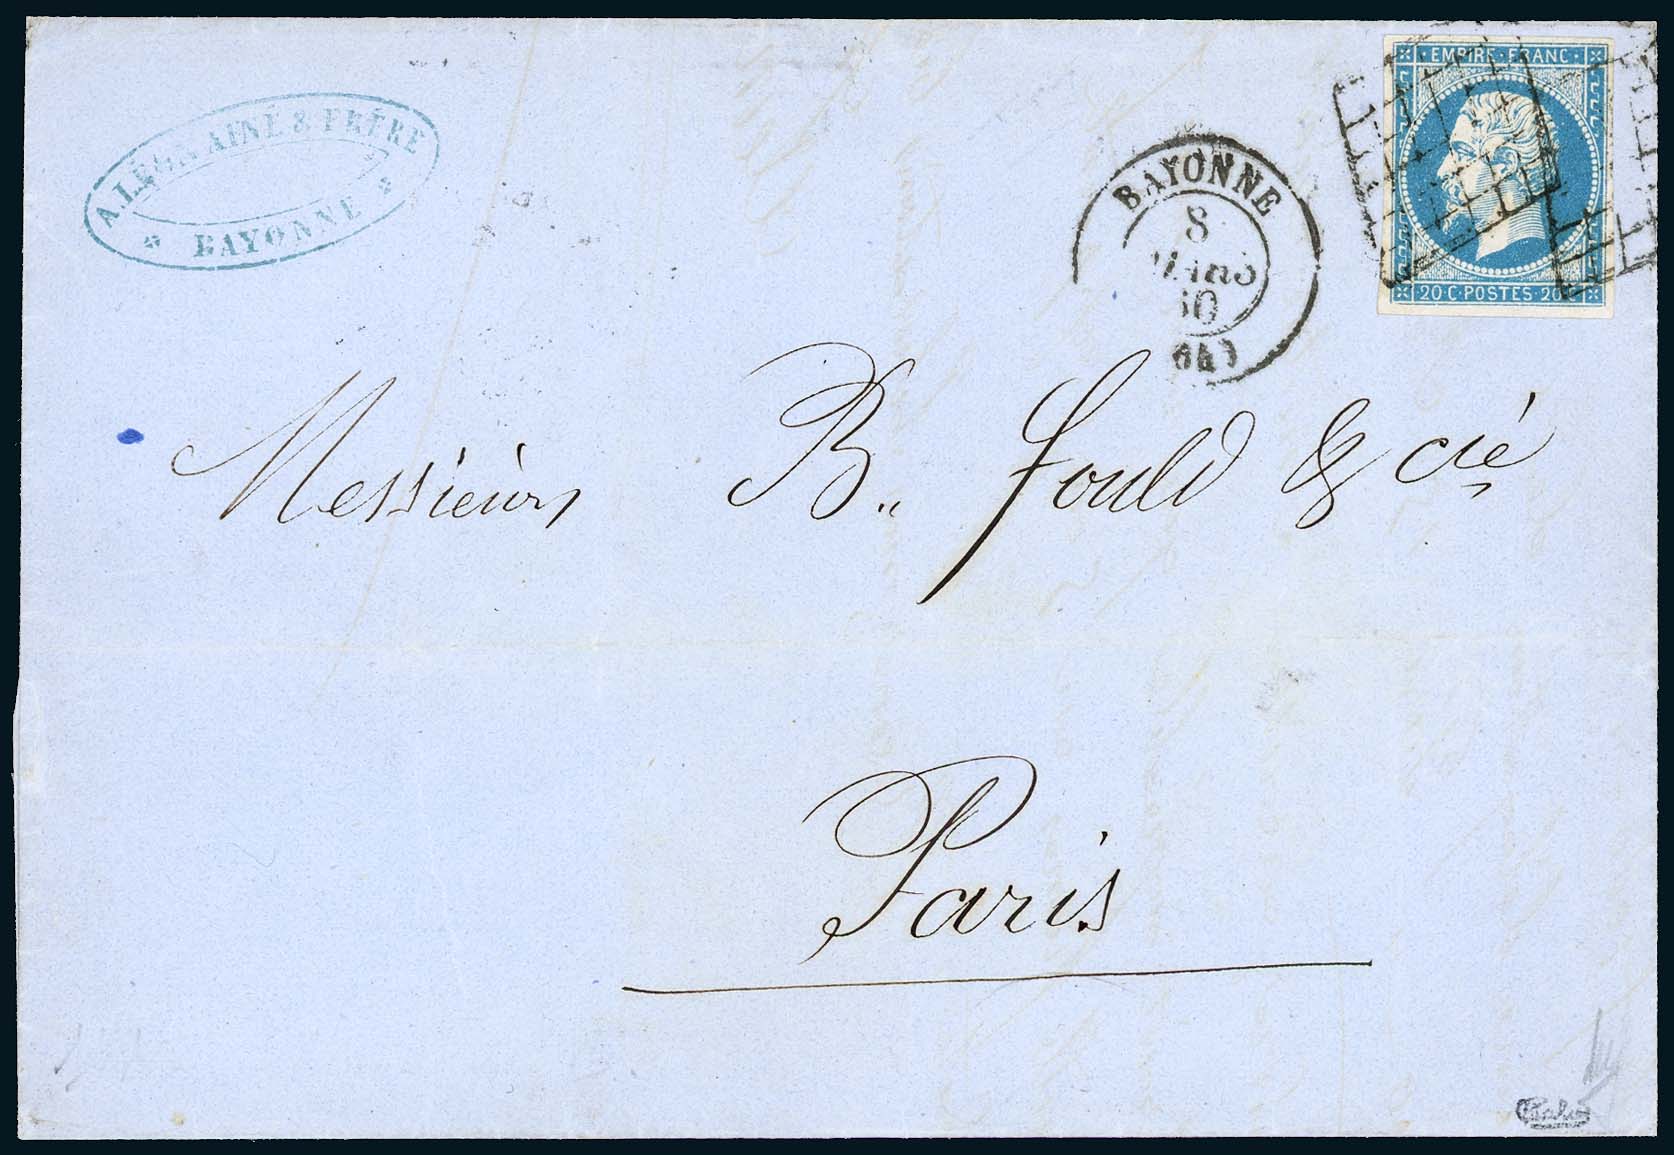 A. LÉON AINÉ & FRÈRE
BAYONNE
EMPIRE·FRANC·
20·C·POSTES·20·C
BAYONNE
8
MARS
60
(64)
Messieurs B. Fould & Cie
Paris